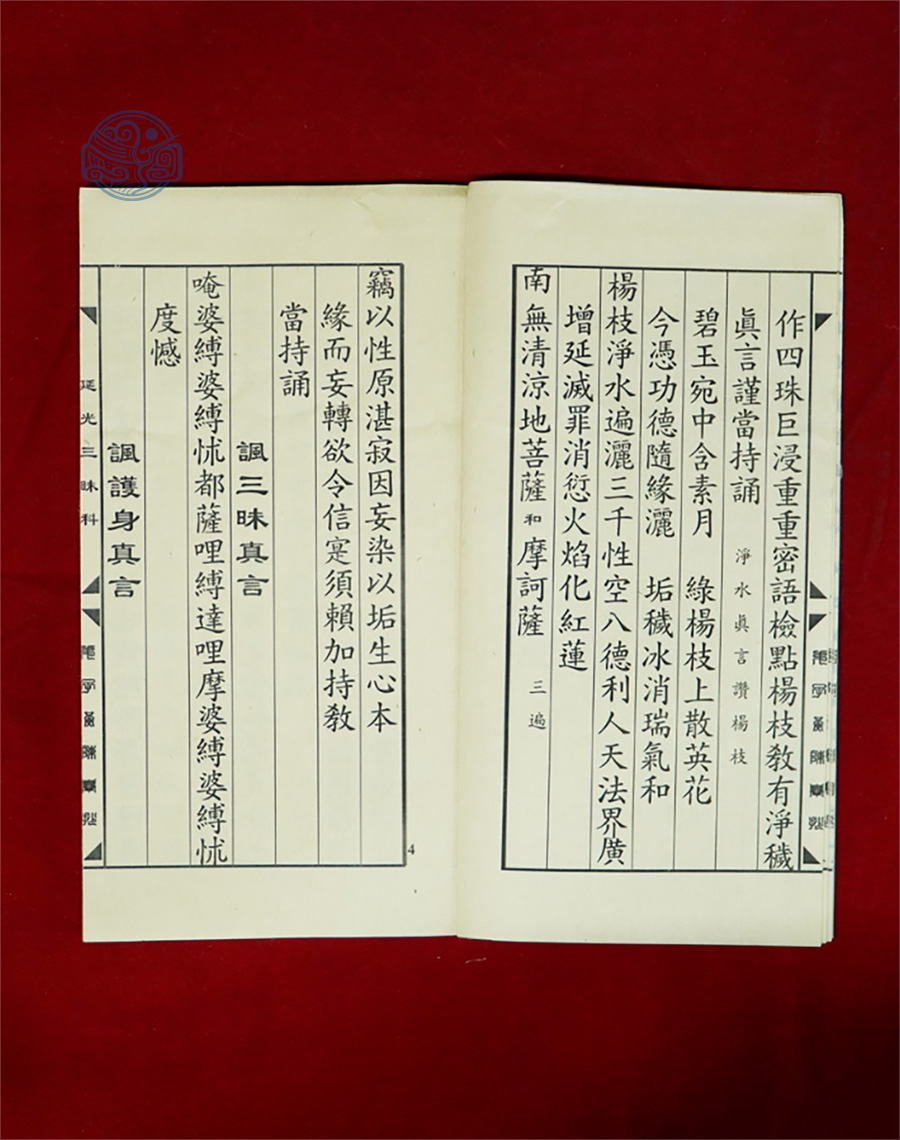 作四珠巨浸重重密語檢點楊枝教有淨穢
真言謹當持誦 淨水真言讚楊枝
碧玉宛中含素月 綠楊枝上散英花
今憑功德隨緣灑 垢穢冰消瑞氣和
楊枝淨水遍灑三千性空八德利人天法界廣
增延滅罪消愆火焰化紅蓮
南無清涼地菩薩 和 摩訶薩 三遍
竊以性原湛寂因妄染以垢生心本
緣而妄轉欲令信寔須賴加持教
當持誦
諷三昧真言
唵婆縛婆縛怵都薩哩縛達哩摩婆縛婆縛怵
度憾
諷護身真言
延光三昧科
4